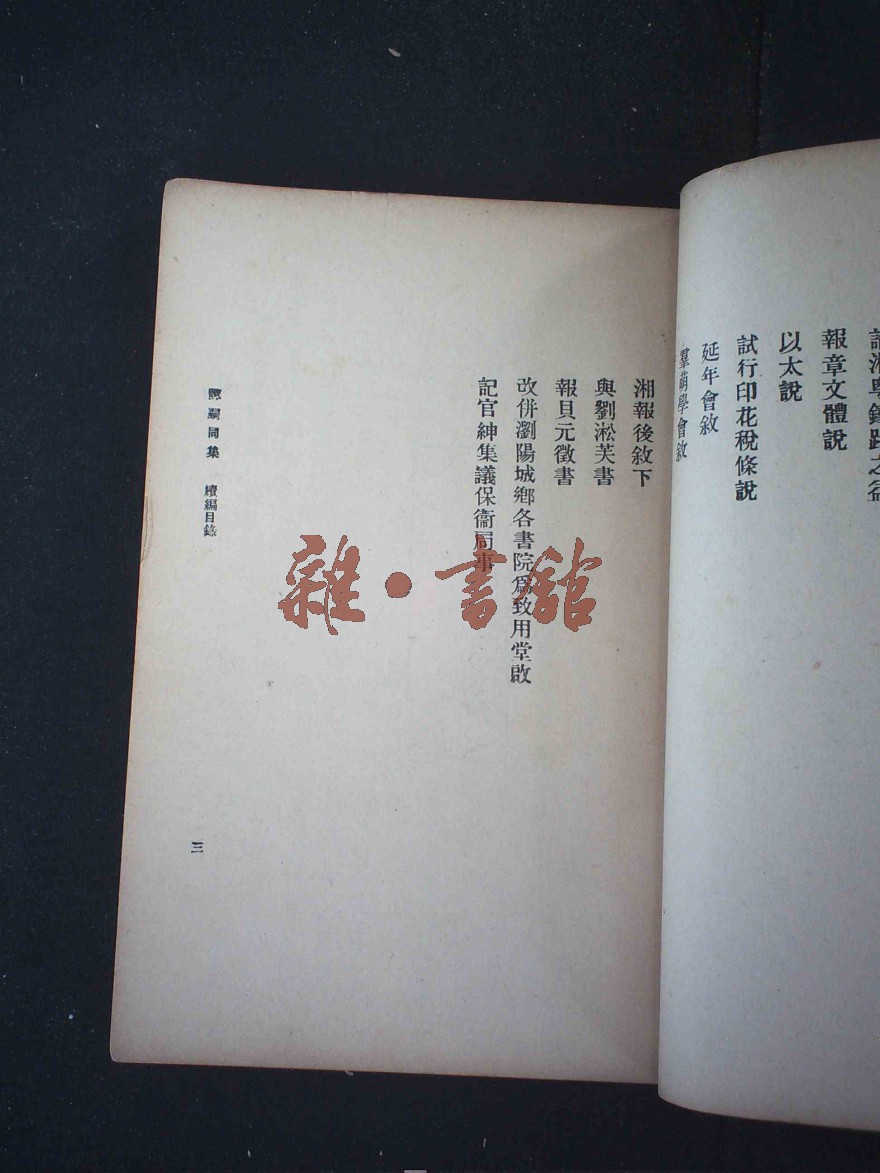 報章文體說
以太說
試行印花稅條說
延年會敘
羣萌學會敘
湘報後敘下
與劉淞芙書
報貝元徵書
改併瀏陽城鄉各書院爲致用堂啟
記官紳集議保衞局事
譚嗣同集 續編目錄
三
雜·書館